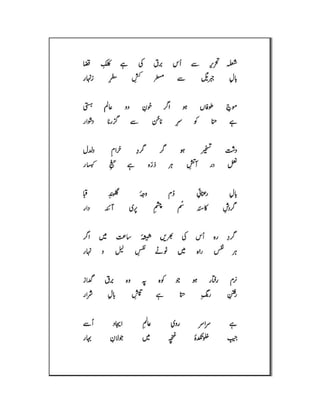 شعلہ تحریر سے اُس برق کی ہے کلکِ قضا
بالِ جبریل سے مسطر کشِ سطرِ زنہار
موجِ طوفاں ہو اگر خونِ دو عالم ہستی
ہے حنا کو سرِ ناخن سے گزرنا دشوار
دشت تسخیر ہو گر گردِ خرامِ دلدل
نعل در آتشِ ہر ذرّہ ہے تیغِ کہسار
بالِ رعنائیِ دُم موجۂ گلبندِ قبا
گردشِ کاسۂ سُم چشمِ پری آئنہ دار
گردِ رہ اُس کی بھریں شیشۂ ساعت میں اگر
ہر نفس راہ میں ٹوٹے نفسِ لیل و نہار
نرم رفتار ہو جو کوہ پہ وہ برق گداز
رفتنِ رنگِ حنا ہے تپشِ بالِ شرار
ہے سراسر رویِ عالمِ ایجاد اُسے
جیبِ خلوتکدۂ غنچہ میں جولانِ بہار